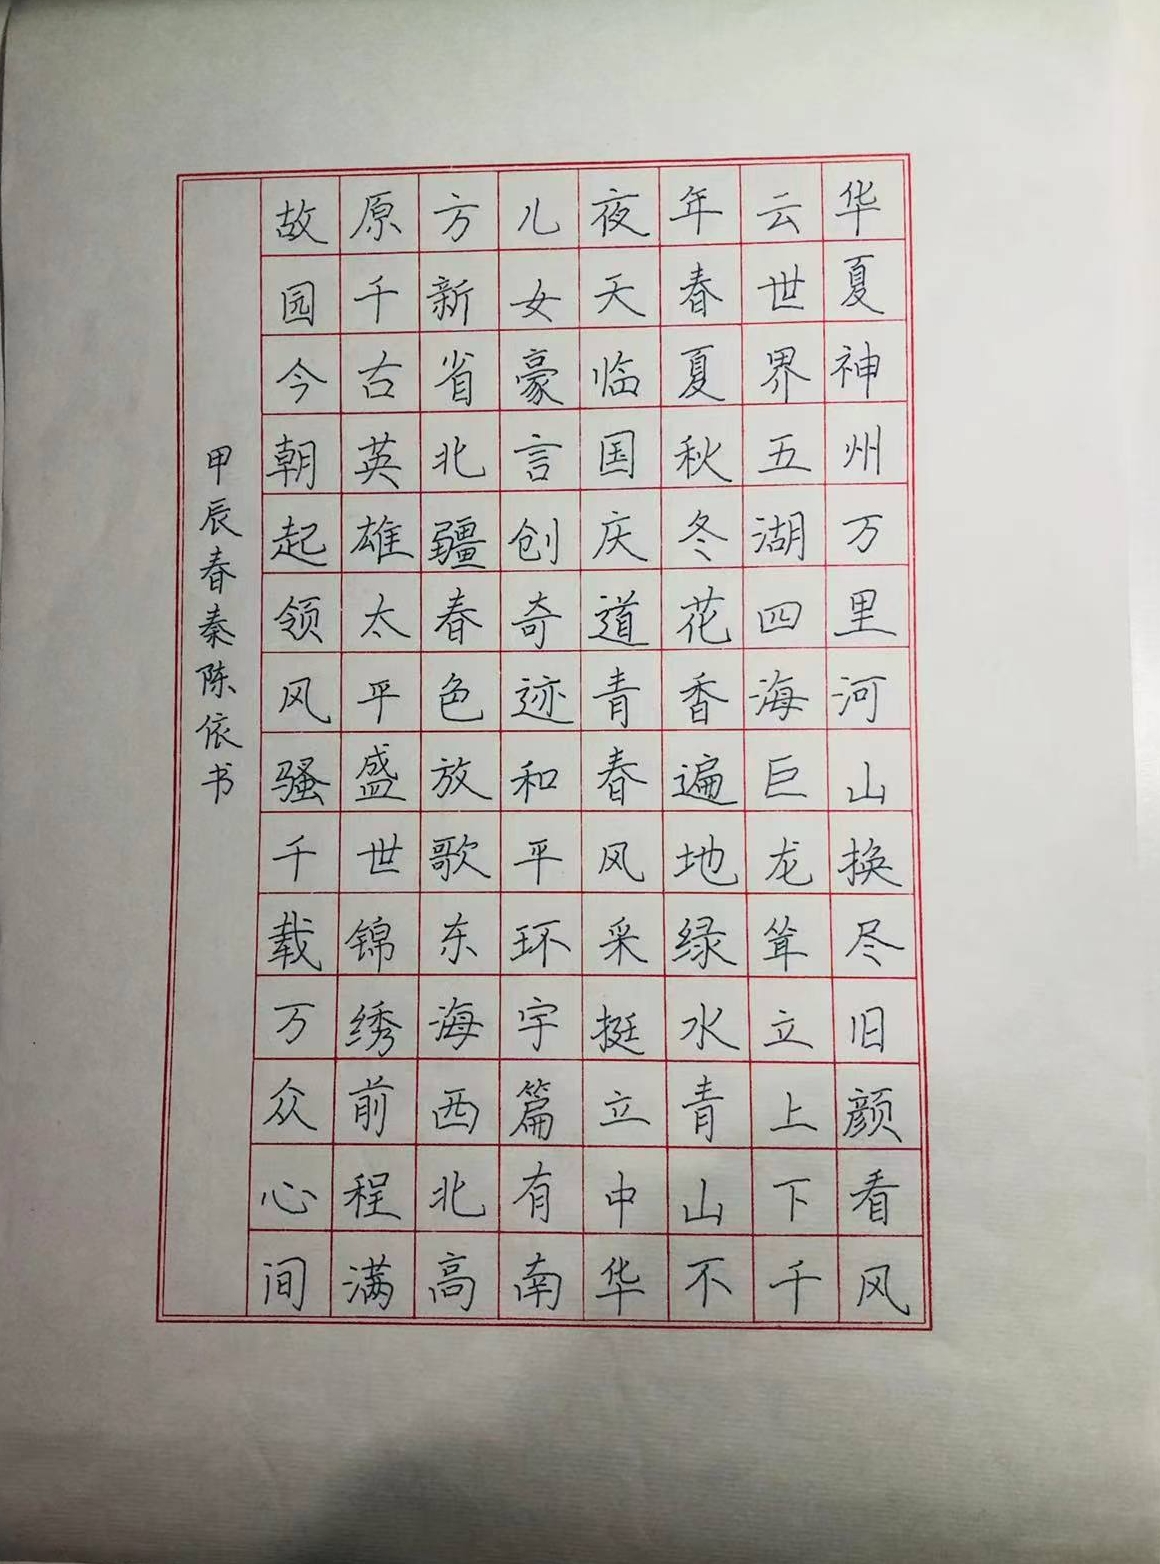 华夏神州万里河山换尽旧颜看风
云世界五湖四海巨龙耸立上下千
年春夏秋冬花香遍地绿水青山不
夜天临国庆道青春风采挺立中华
儿女豪言创奇迹和平环宇篇有南
方新省北疆春色放歌东海西北高
原千古英雄太平盛世锦绣前程满
故园今朝起领风骚千载万众心间
甲辰春秦陈依书